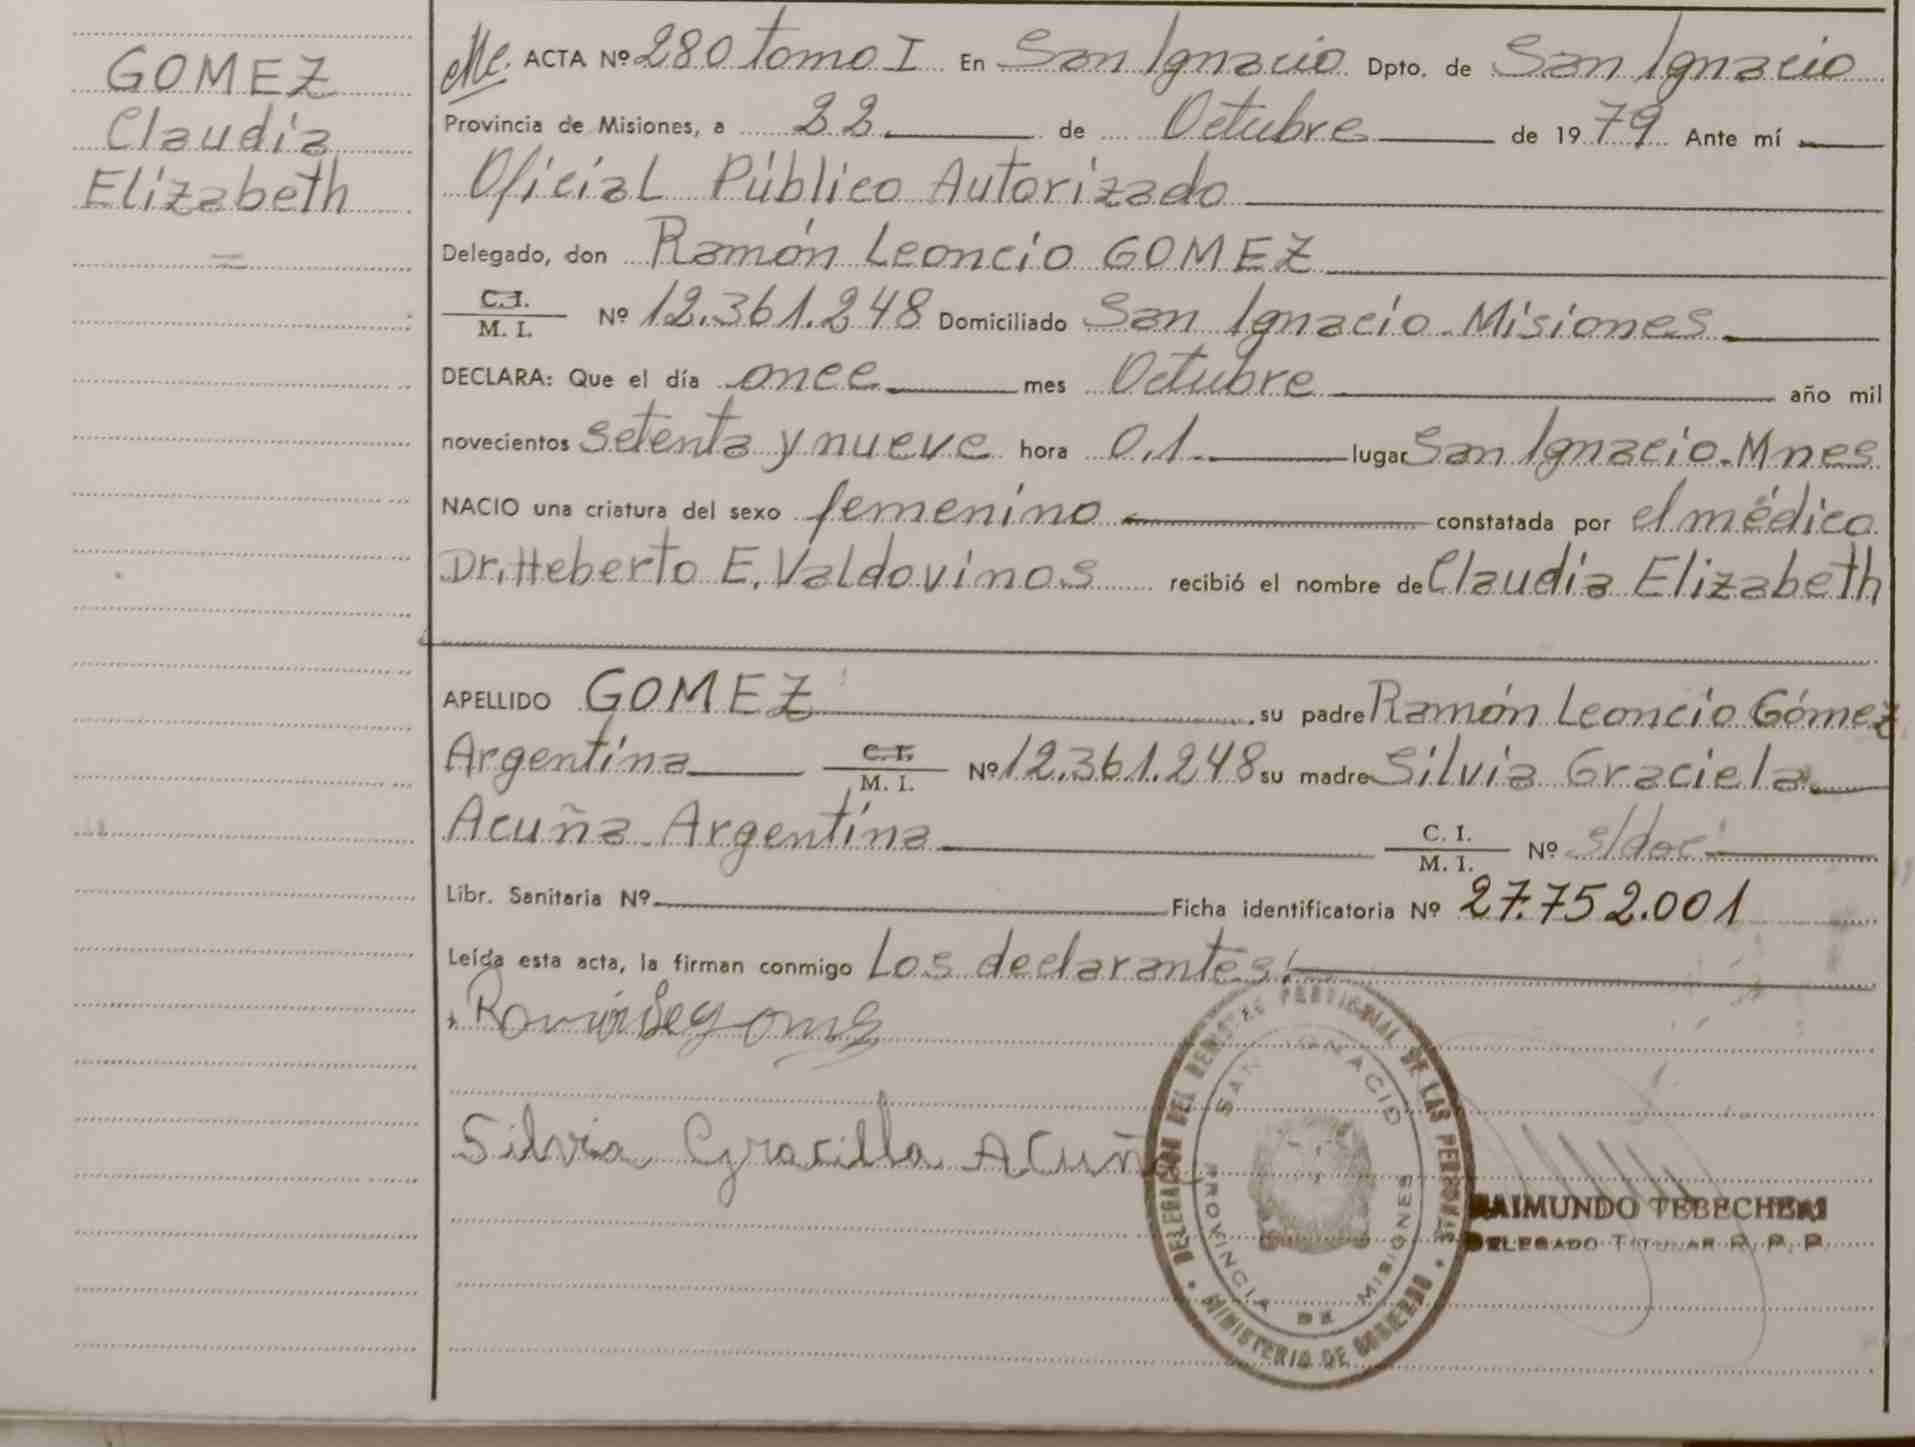 GOMEZ
Claudia
Elizabeth
ACTA Nº 280 tomo I En San Ignacio Dpto. de San Ignacio
Provincia de Misiones, a 22 de Octubre de 1979 Ante mí
Oficial Público Autorizado
Delegado, don Ramón Leoncio GOMEZ
C.I.
M. I. Nº 12.361.248 Domiciliado San Ignacio - Misiones
DECLARA: Que el día once mes Octubre año mil
novecientos setenta y nueve hora 0,1 lugar San Ignacio - Mnes
NACIO una criatura del sexo femenino constatada por el médico
Dr. Heberto E. Valdovinos recibió el nombre de Claudia Elizabeth
APELLIDO GOMEZ su padre Ramón Leoncio Gómez
Argentina C.I. M. I. Nº 12.361.248 su madre Silvia Graciela
Acuña - Argentina C. I. M. I. Nº s/doc
Libr. Sanitaria Nº Ficha identificatoria Nº 27.752.001
Leída esta acta, la firman conmigo Los declarantes
Silvia Gracilla Acuña
DELEGACION DEL REGISTRO PROVINCIAL DE LAS PERSONAS
MINISTERIO DE GOBIERNO
SAN IGNACIO
PROVINCIA DE MISIONES
RAIMUNDO TEBECHERI
DELEGADO TITULAR R. P. P.